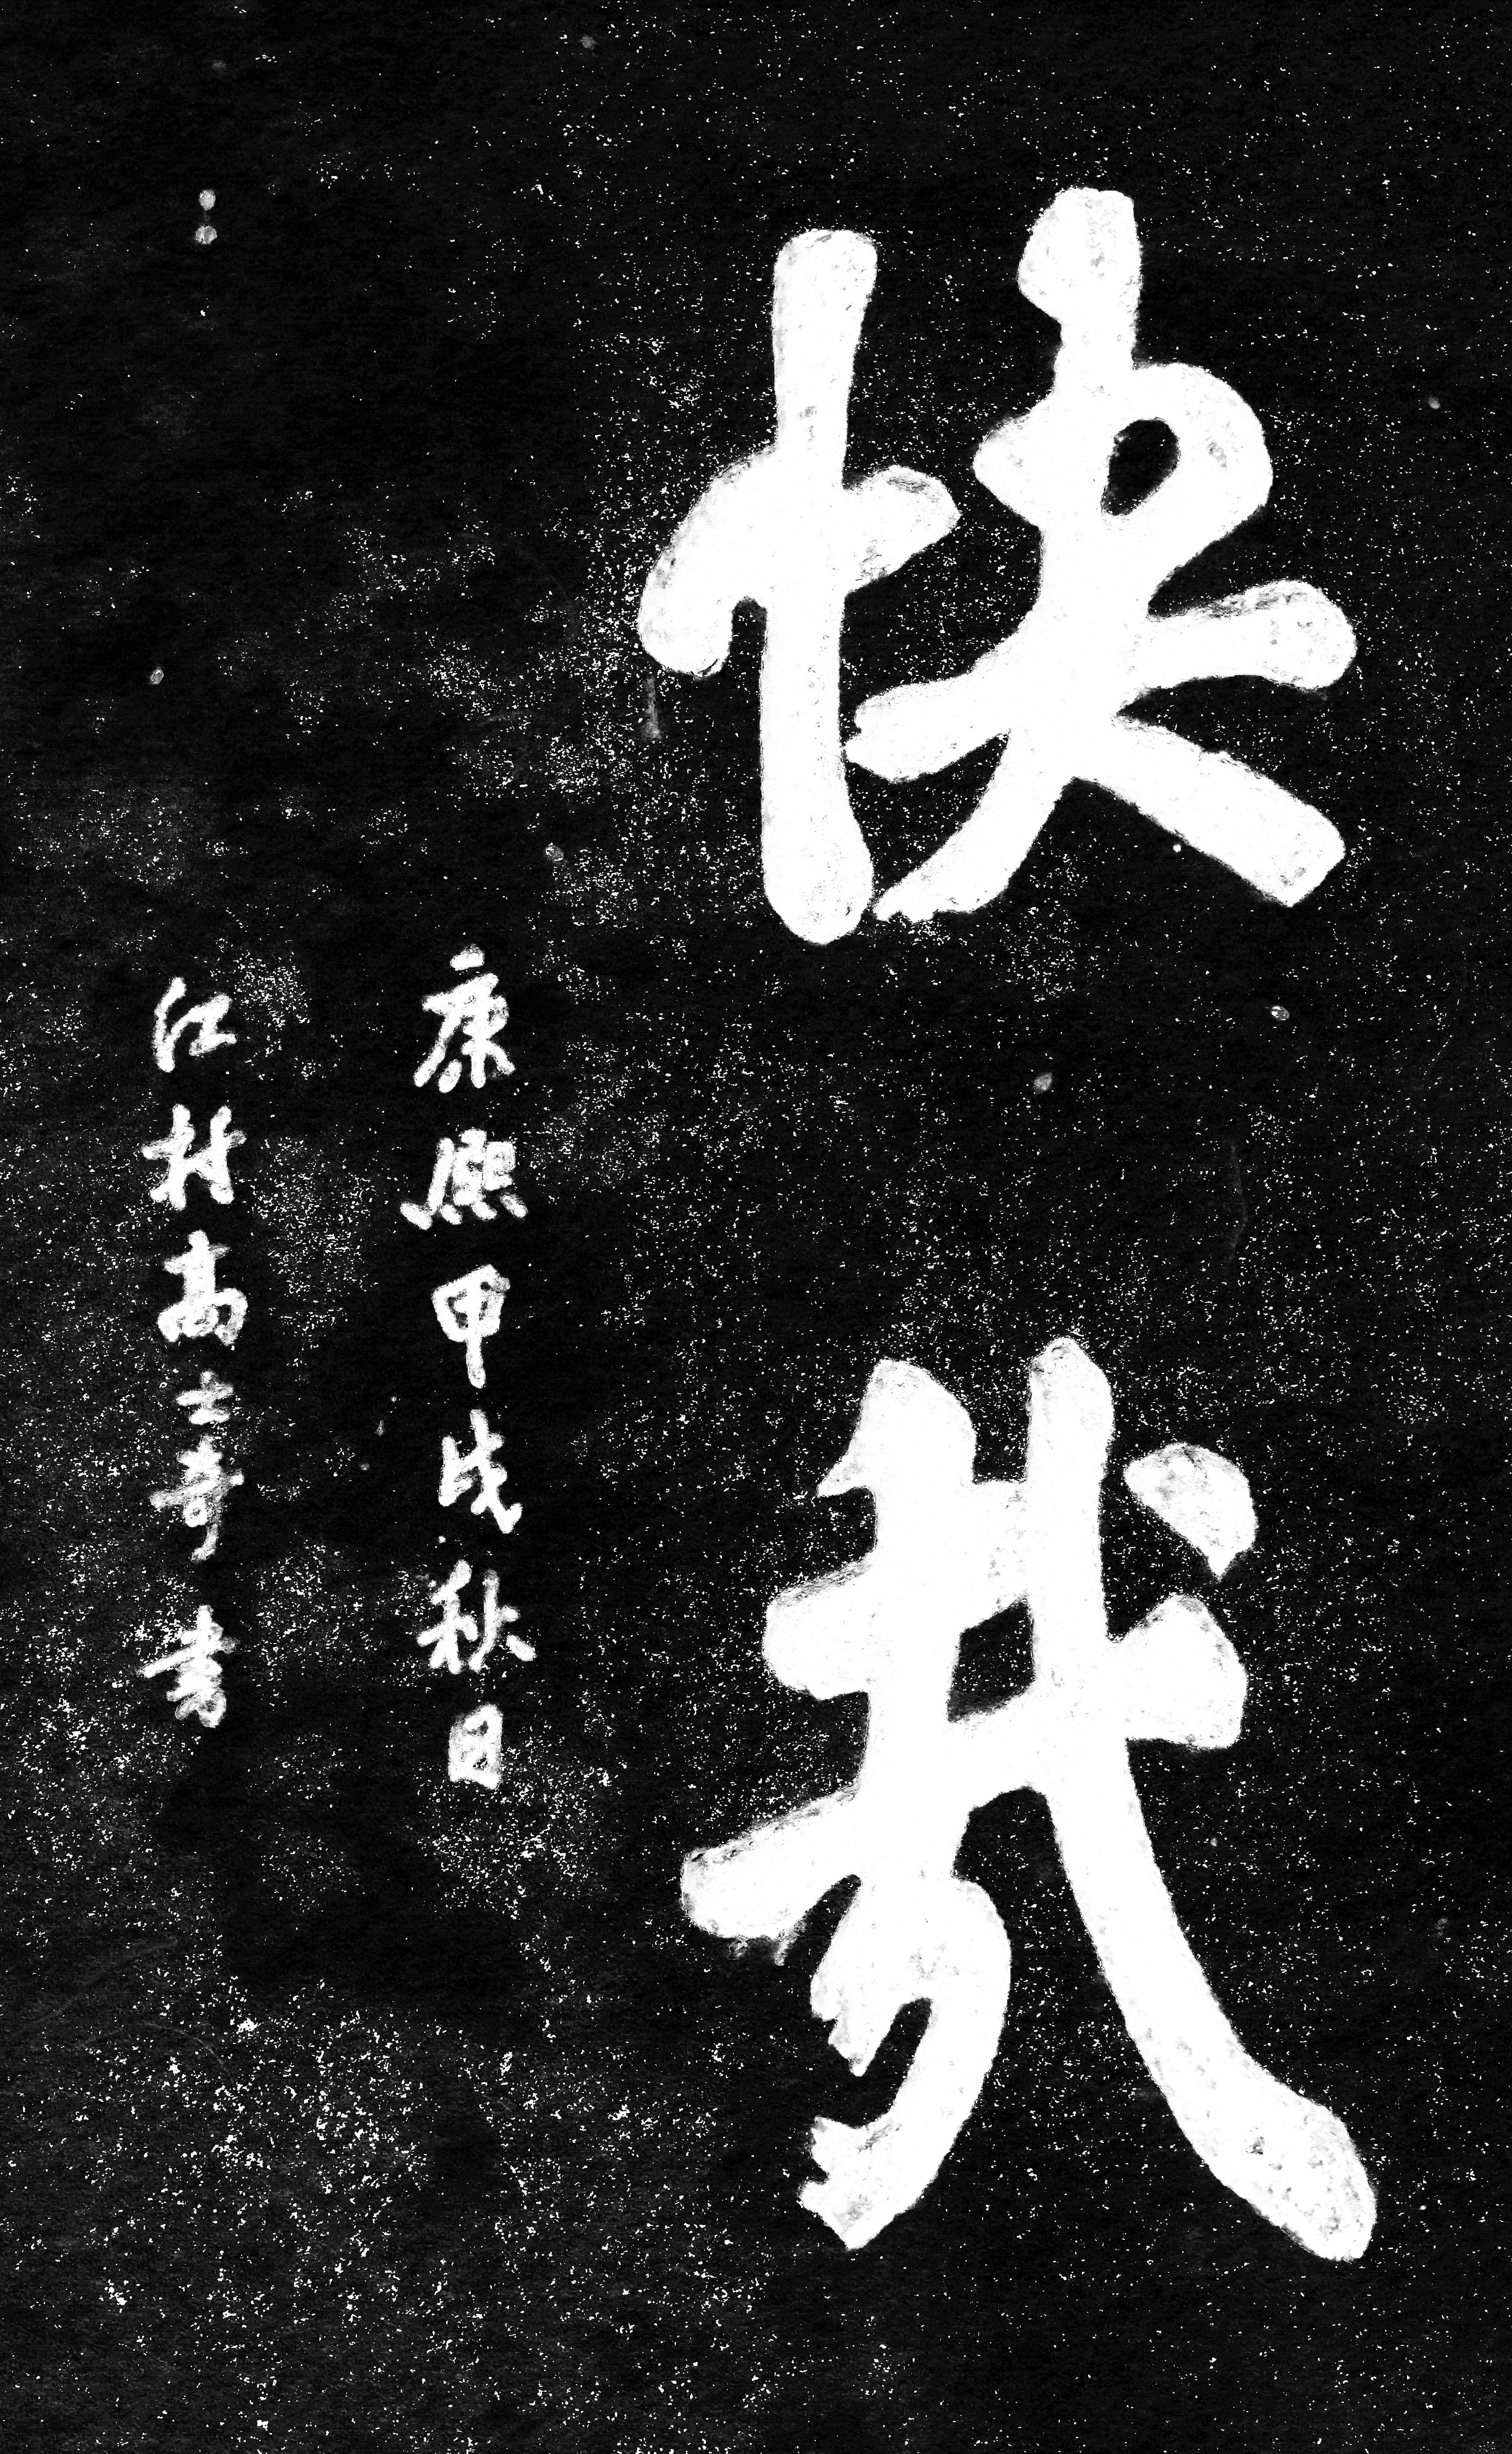 快哉
康熙甲戌秋日
江村高士奇書